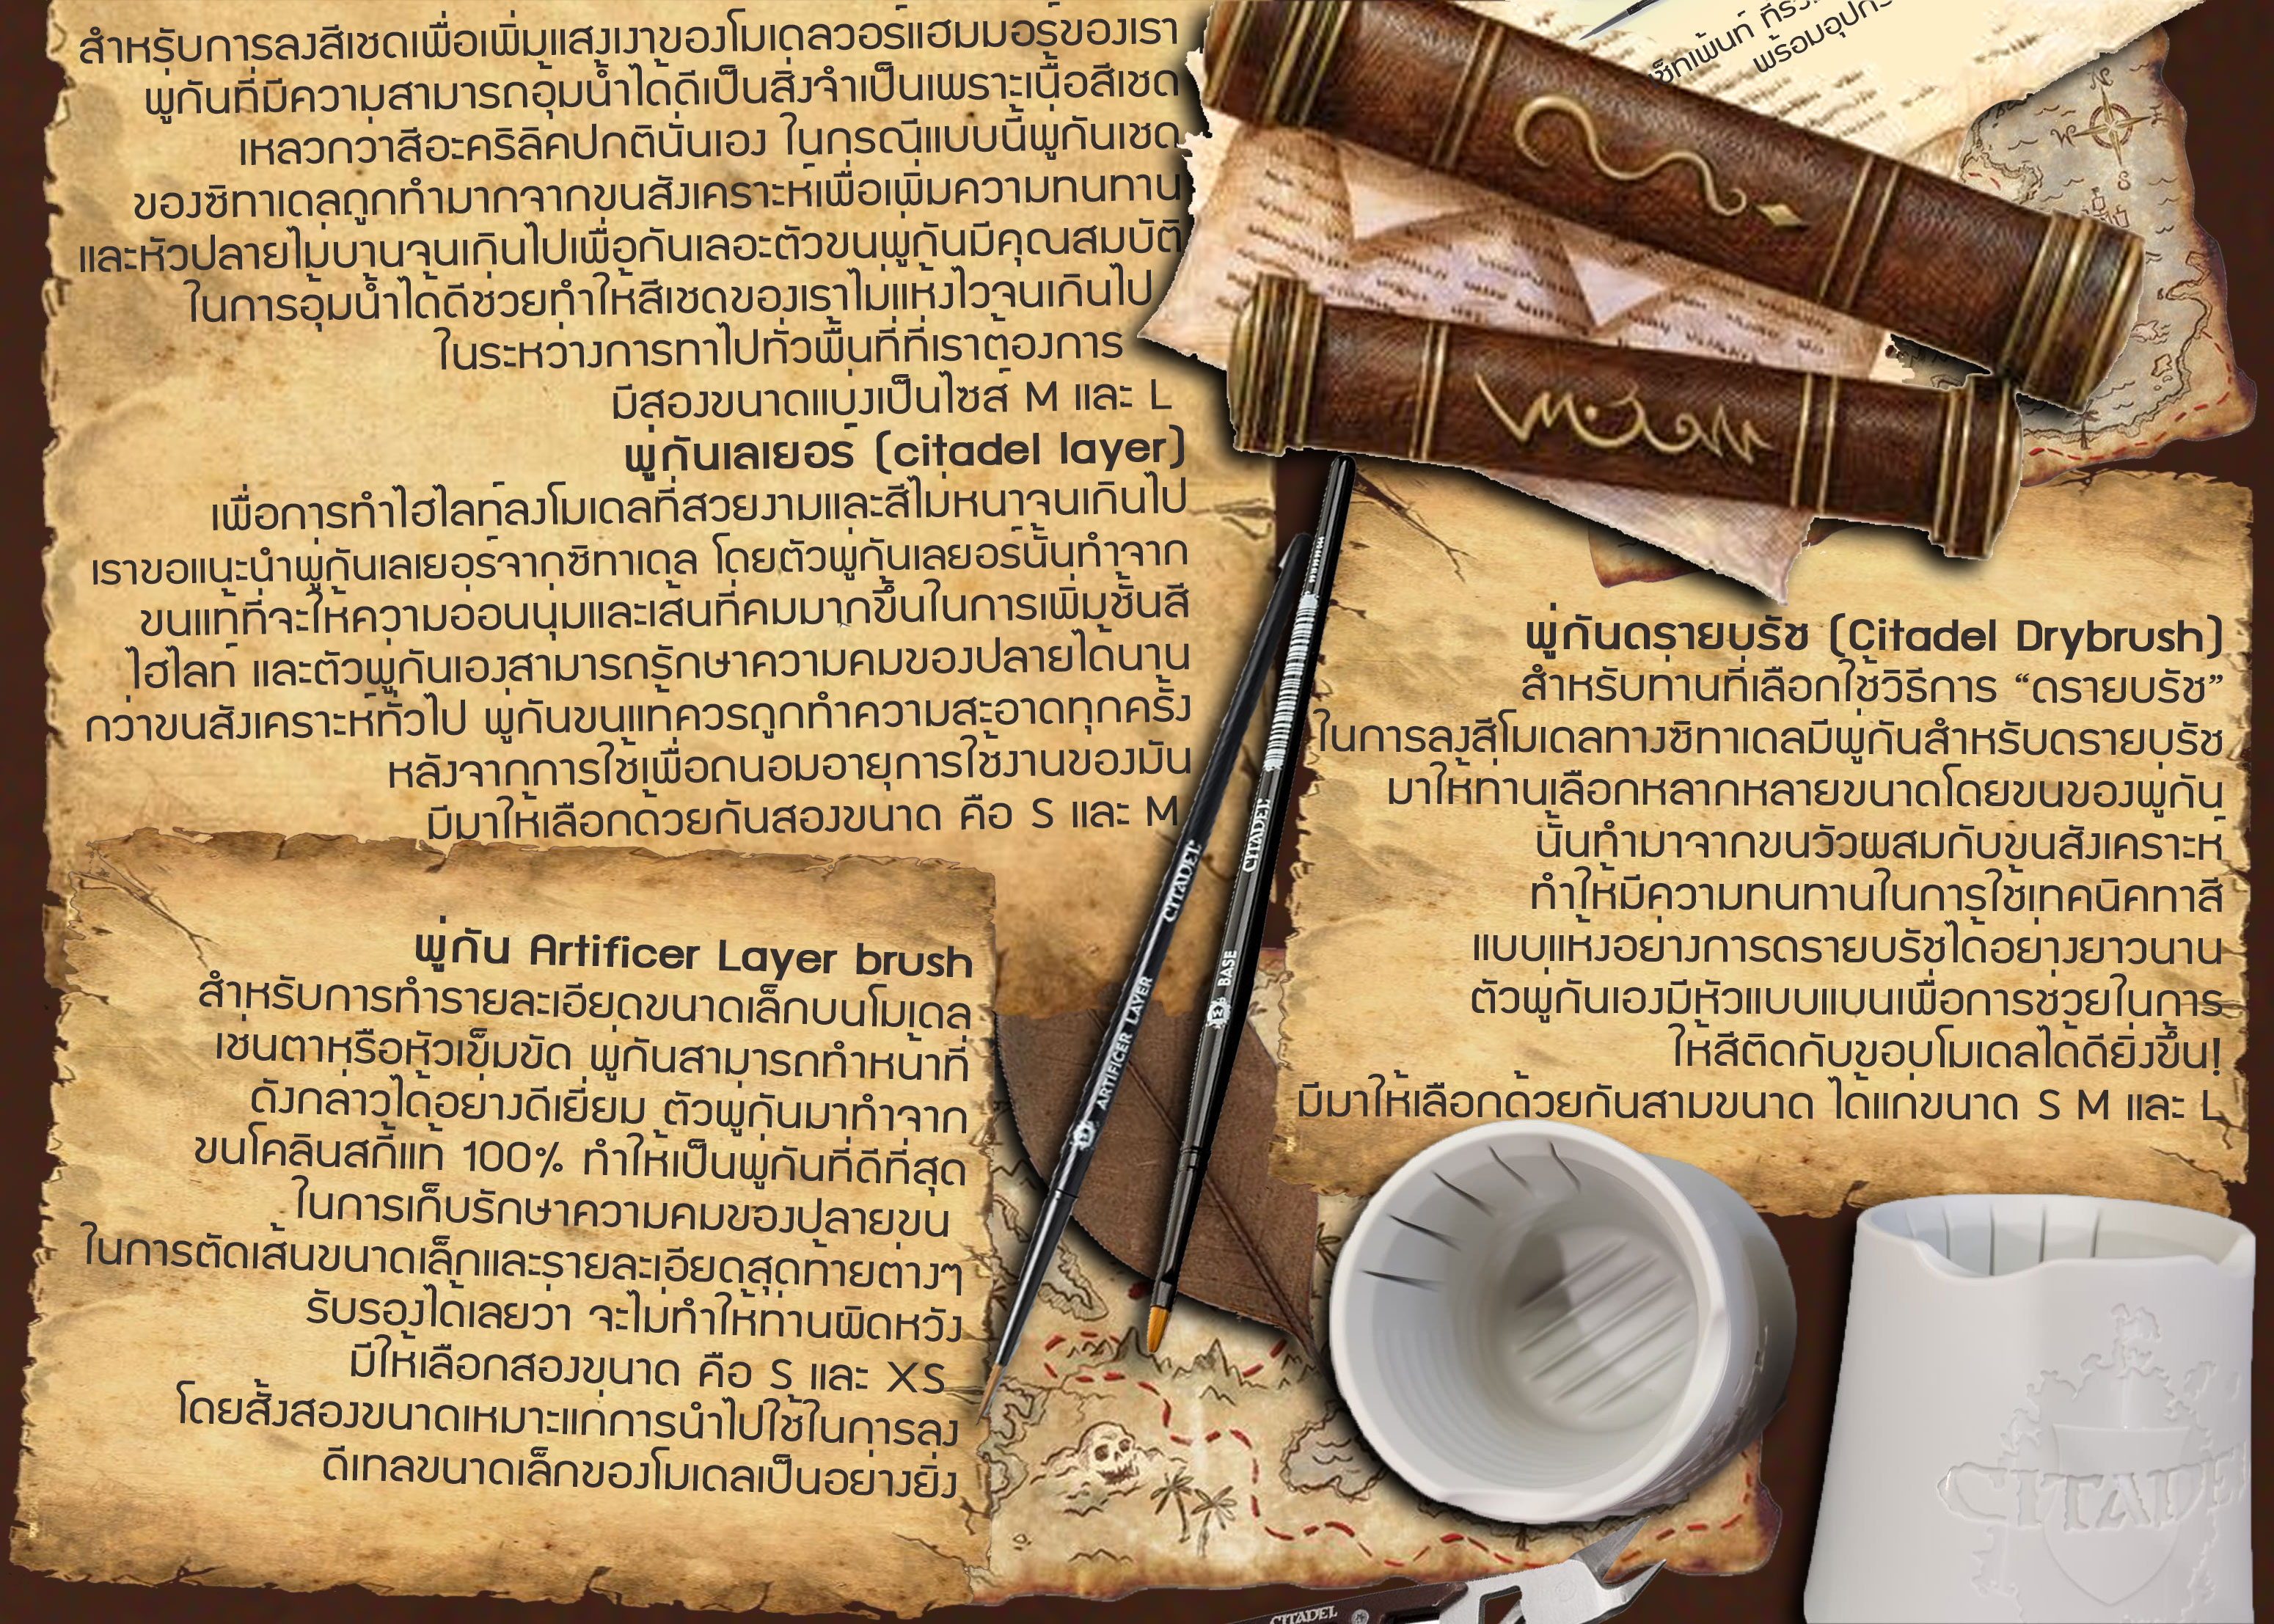 สำหรับการลงสีเชดเพื่อเพิ่มแสงเงาของโมเดลวอร์แฮมมอร์ของเรา
พู่กันที่มีความสามารถอุ้มน้ำได้ดีเป็นสิ่งจำเป็นเพราะเนื้อสีเชด
เหลวกว่าสีอะคริลิคปกตินั่นเอง ในกรณีแบบนี้พู่กันเชด
ของซิทาเดลถูกทำมากจากขนสังเคราะห์เพื่อเพิ่มความทนทาน
และหัวปลายไม่บานจนเกินไปเพื่อกันเลอะตัวขนพู่กันมีคุณสมบัติ
ในการอุ้มน้ำได้ดีช่วยทำให้สีเชดของเราไม่แห้งไวจนเกินไป
ในระหว่างการทาไปทั่วพื้นที่ที่เราต้องการ
มีสองขนาดแบ่งเป็นไซส์ M และ L
พู่กันเลเยอร์ (citadel layer)
เพื่อการทำไฮไลท์ลงโมเดลที่สวยงามและสีไม่หนาจนเกินไป
เราขอแนะนำพู่กันเลเยอร์จากซิทาเดล โดยตัวพู่กันเลยอร์นั้นทำจาก
ขนแท้ที่จะให้ความอ่อนนุ่มและเส้นที่คมมากขึ้นในการเพิ่มชั้นสี
ไฮไลท์ และตัวพู่กันเองสามารถรักษาความคมของปลายได้นาน
กว่าขนสังเคราะห์ทั่วไป พู่กันขนแท้ควรถูกทำความสะอาดทุกครั้ง
หลังจากการใช้เพื่อถนอมอายุการใช้งานของมัน
มีมาให้เลือกด้วยกันสองขนาด คือ S และ M
พู่กัน Artificer Layer brush
สำหรับการทำรายละเอียดขนาดเล็กบนโมเดล
เช่นตาหรือหัวเข็มขัด พู่กันสามารถทำหน้าที่
ดังกล่าวได้อย่างดีเยี่ยม ตัวพู่กันมาทำจาก
ขนโคลินสกี้แท้ 100% ทำให้เป็นพู่กันที่ดีที่สุด
ในการเก็บรักษาความคมของปลายขน
ในการตัดเส้นขนาดเล็กและรายละเอียดสุดท้ายต่างๆ
รับรองได้เลยว่า จะไม่ทำให้ท่านผิดหวัง
มีให้เลือกสองขนาด คือ S และ XS
โดยสั้งสองขนาดเหมาะแก่การนำไปใช้ในการลง
ดีเทลขนาดเล็กของโมเดลเป็นอย่างยิ่ง
CITADEL
ARTIFICER LAYER
CITADEL
BASE
เซ็ทเพ้นท์
พร้อมอุปกร
N
W
E
S
พู่กันดรายบรัช (Citadel Drybrush)
สำหรับท่านที่เลือกใช้วิธีการ “ดรายบรัช”
ในการลงสีโมเดลทางซิทาเดลมีพู่กันสำหรับดรายบรัช
มาให้ท่านเลือกหลากหลายขนาดโดยขนของพู่กัน
นั้นทำมาจากขนวัวผสมกับขนสังเคราะห์
ทำให้มีความทนทานในการใช้เทคนิคทาสี
แบบแห้งอย่างการดรายบรัชได้อย่างยาวนาน
ตัวพู่กันเองมีหัวแบบแบนเพื่อการช่วยในการ
ให้สีติดกับขอบโมเดลได้ดียิ่งขึ้น!
มีมาให้เลือกด้วยกันสามขนาด ได้แก่ขนาด S M และ L
CITADEL
CITADEL